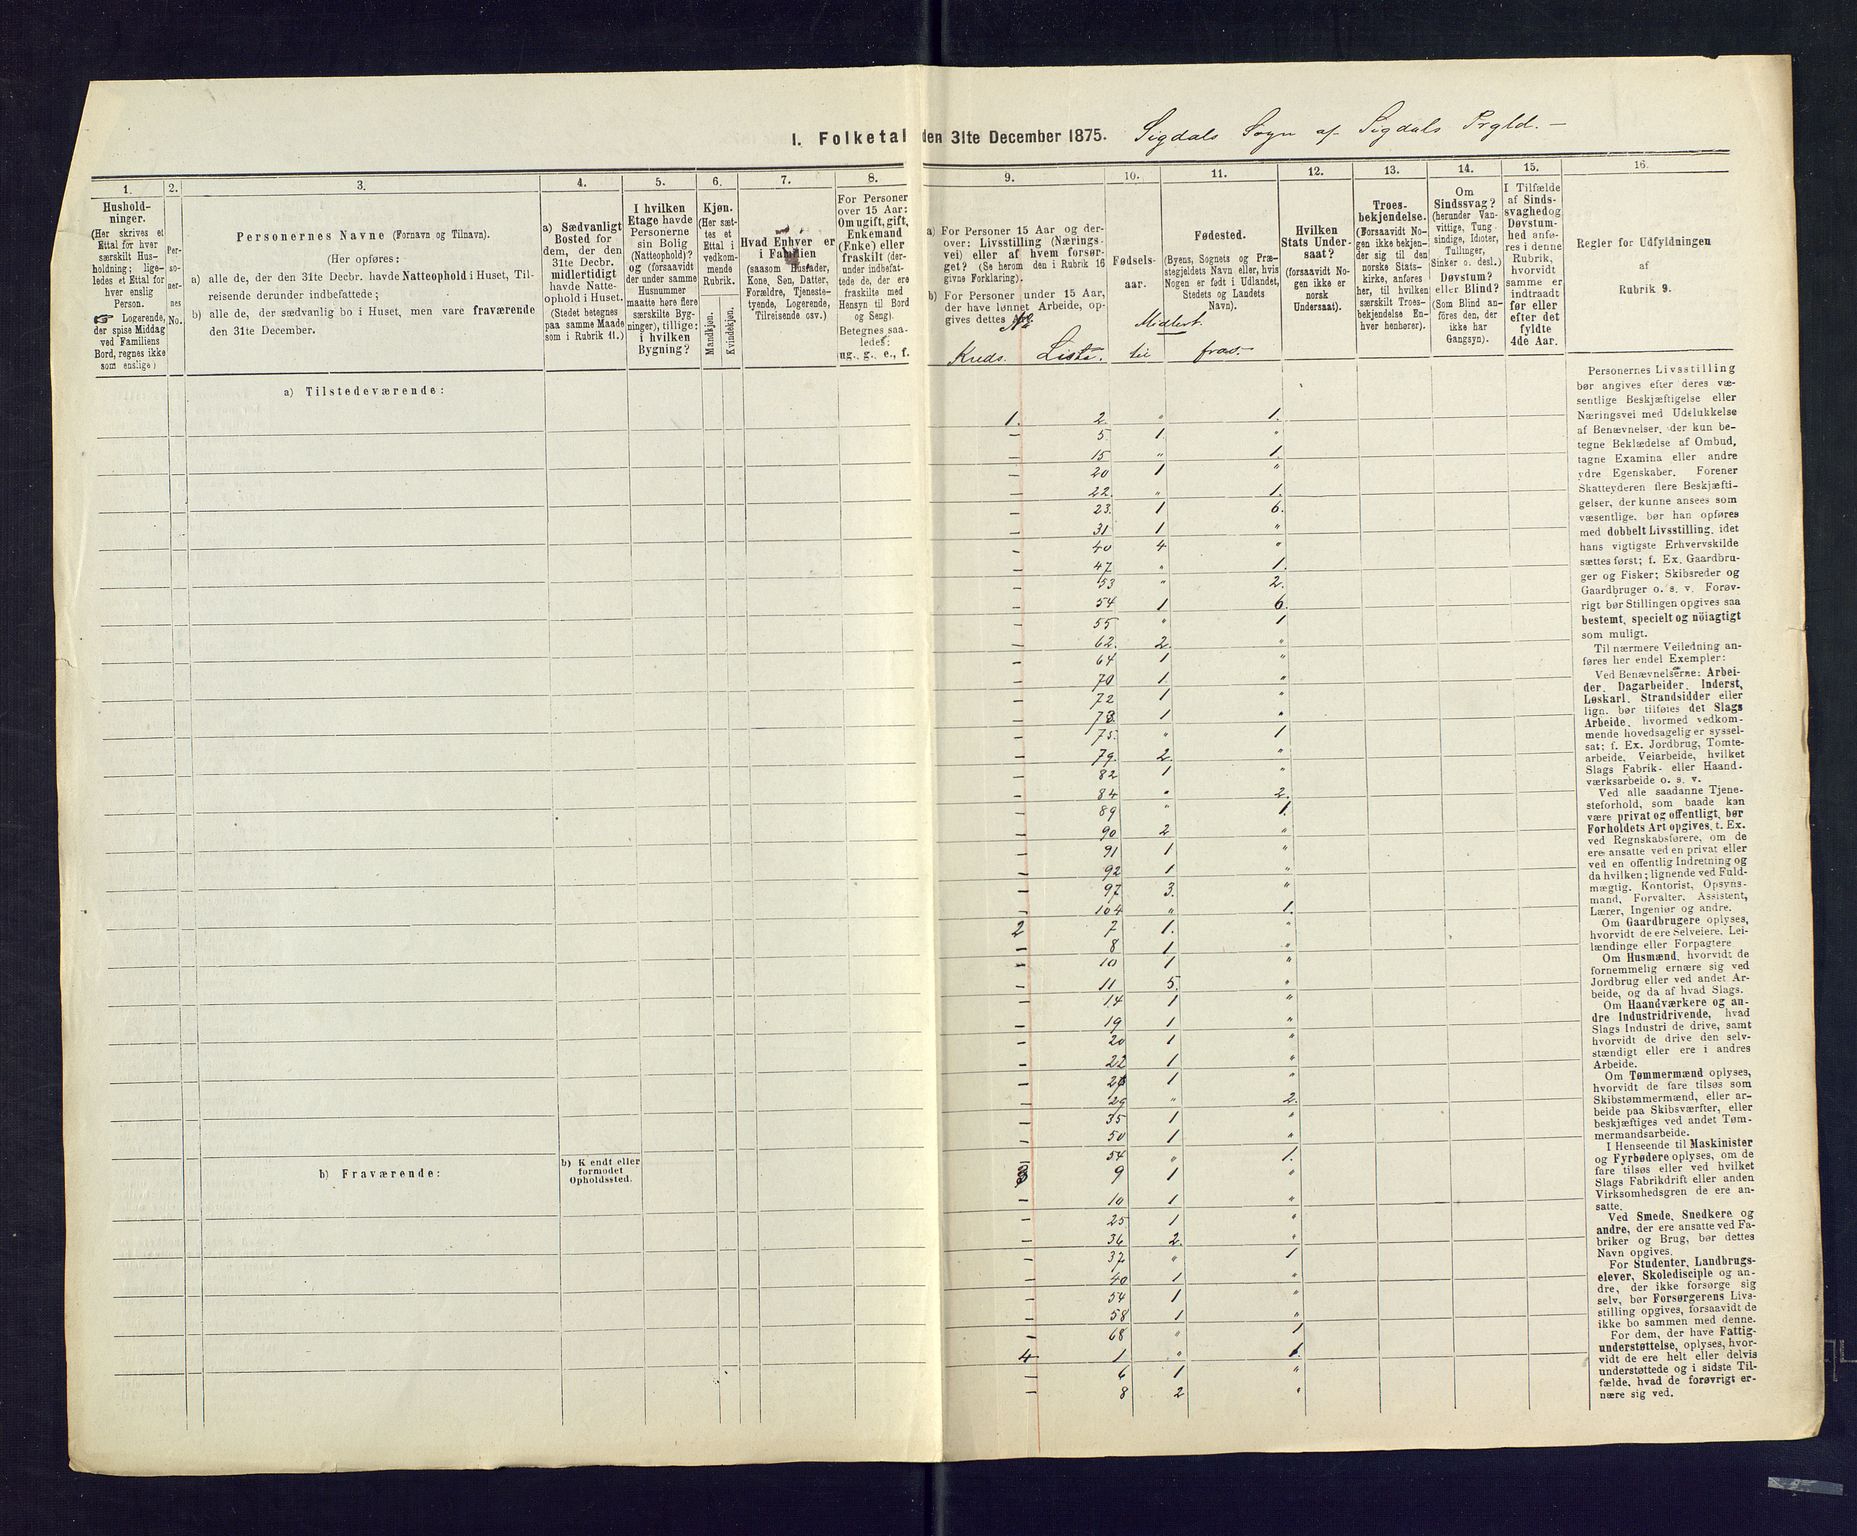 I. Folketal den 31te December 1875. Sigdals Sogn af Sigdals Prgld. —
1.
2.
3.
4.
5.
6.
7.
8.
9.
10.
11.
12.
13.
14.
15.
16.
Husholdninger.
(Her skrives et
Ettal for hver
særskilt Husholdning;
ligeledes et Ettal for
hver enslig
Person.
☞ Logerende,
der spise Middag
ved Familiens
Bord, regnes ikke
som enslige)
Personernes
No.
Personernes Navne (Fornavn og Tilnavn).
(Her opføres:
a) alle de, der den 31te Decbr. havde Natteophold i Huset, Tilreisende
derunder indbefattede;
b) alle de, der sædvanlig bo i Huset, men vare fraværende
den 31te December.
a) Sædvanligt
Bosted for
dem, der den
31te Decbr.
midlertidigt
havde Natteophold
i Huset.
(Stedet betegnes
paa samme Maade
som i Rubrik 11.)
I hvilken
Etage havde
Personerne
sin Bolig
(Natteophold)?
og (forsaavidt
der under samme
Husnummer
maatte høre flere
særskilte Bygninger),
tillige:
i hvilken
Bygning?
Kjøn.
(Her sættes
et
Ettal i
vedkommende
Rubrik.
Mandkjøn.
Kvindekjøn.
Hvad Enhver er
i Familien
(saasom Husfader,
Kone, Søn, Datter,
Forældre, Tjenestetyende,
Logerende,
Tilreisende osv.)
For Personer
over 15 Aar:
Om ugift, gift,
Enkemand
(Enke) eller
fraskilt (derunder
indbefattede
de, der ere
fraskilte med
Hensyn til Bord
og Seng).
Betegnes saaledes:
ug., g., e., f.
a) For Personer 15 Aar og derover:
Livsstilling (Næringsvei)
eller af hvem forsørget?
(Se herom den i Rubrik 16
givne Forklaring).
b) For Personer under 15 Aar,
der have lønnet Arbeide, opgives
dettes Art.
Fødselsaar.
Fødested.
(Byens, Sognets og Præstegjeldets
Navn eller, hvis
Nogen er født i Udlandet,
Stedets og Landets
Navn).
Hvilken
Stats Undersaat?
(forsaavidt Nogen
ikke er
norsk
Undersaat).
Troesbekjendelse.
(Forsaavidt Nogen
ikke bekjender
sig til den
norske Statskirke,
anføres
her, til hvilken
særskilt Troesbekjendelse
Enhver
henhører).
Om
Sindssvag?
(herunder Vanvittige,
Tungsindige,
Idioter,
Tullinger,
Sinker o. desl.)
Døvstum?
eller Blind?
(Som Blind anføres
den, der
ikke har
Gangsyn).
I Tilfælde
af Sindssvaghed
og
Døvstumhed
anføres
i denne
Rubrik,
hvorvidt
samme er
indtraadt
før eller
efter det
fyldte
4de Aar.
Regler for Udfyldningen
af
Rubrik 9.
No
Midlert.
Kreds. Liste. til frav.
a) Tilstedeværende:
1. 2. " 1.
— 5. 1. "
— 15 " 1.
— 20 1 "
— 22. " 1.
— 23. 1 6.
— 31 1 "
— 40 4 "
— 47 " 1.
— 53 " 2.
— 54 1 6.
— 55 " 1
— 62. 2. "
— 64 1 "
— 70 1. "
— 72 1 "
— 73. 1 "
— 75. " 1
— 79. 2. "
— 82 1 "
— 84 " 2.
— 89 " 1.
— 90 2 "
— 91 1 "
— 92 1 "
— 97 3. "
— 104 " 1.
2 7 1. "
— 8 1 "
— 10 1 "
— 11 5. "
— 14 1 "
— 19 1 "
— 20 1 "
— 22 1 "
— 1 "
— 29 " 2.
— 35 1 "
— 50 1 "
— 54 " 1.
3 9 1 "
— 10 1 "
— 25 1 "
— 36 2. "
— 37 " 1
— 40 1 "
— 54 1 "
— 58 1 "
— 68 " 1
4 1 " 1.
— 6 1 "
— 8 2 "
b) Fraværende:
b) Kjendt eller
formodet
Opholdssted.
Personernes Livsstilling
bør angives efter deres væsentlige
Beskjæftigelse eller
Næringsvei med Udelukkelse
af Benævnelser, der kun betegne
Beklædelse af Ombud,
tagne Examina eller andre
ydre Egenskaber. Forener
Skatteyderen flere Beskjæftigelser,
der kunne ansees som
væsentlige, bør han opføres
med dobbelt Livsstilling, idet
hans vigtigste Erhvervskilde
sættes først; f. Ex. Gaardbruger
og Fisker; Skibsreder og
Gaardbruger o. s. v. Forøvrigt
bør Stillingen opgives saa
bestemt, specielt og nöiagtigt
som muligt.
Til nærmere Veiledning anføres
her endel Exempler:
Ved Benævnelserne: Arbeider,
Dagarbeider, Inderst,
Løskarl, Strandsidder eller
lign. bør tilføies det Slags
Arbeide, hvormed vedkommende
hovedsagelig er sysselsat;
f. Ex. Jordbrug, Tomtearbeide,
Veiarbeide, hvilket
Slags Fabrik- eller Haandværksarbeide
o. s. v.
Ved alle saadanne Tjenesteforhold,
som baade kan
være privat og offentligt, bør
Forholdets Art opgives, t. Ex.
ved Regnskabsførere, om de
ere ansatte ved en privat eller
ved en offentlig Indretning og
da hvilken; lignende ved Fuldmægtig,
Kontorist, Opsynsmand,
Forvalter, Assistent,
Lærer, Ingeniør og andre.
Om Gaardbrugere oplyses,
hvorvidt de ere Selveiere, Leilændinge
eller Forpagtere
Om Husmænd, hvorvidt de
fornemmelig ernære sig ved
Jordbrug eller ved andet Arbeide,
og da af hvad Slags.
Om Haandværkere og andre
Industridrivende, hvad
Slags Industri de drive, samt
hvorvidt de drive den selvstændigt
eller ere i andres
Arbeide.
Om Tømmermænd oplyses,
hvorvidt de fare tilsøs som
Skibstømmermænd, eller arbeide
paa Skibsværfter, eller
beskjæftiges ved andet Tømmermandsarbeide.
I Henseende til Maskinister
og Fyrbødere oplyses, om de
fare tilsøs eller ved hvilket
Slags Fabrikdrift eller anden
Virksomhedsgren de ere ansatte.
Ved Smede, Snedkere og
andre, der ere ansatte ved Fabriker
og Brug, bør dettes
Navn opgives.
For Studenter, Landbrugselever,
Skoledisciple og andre,
der ikke forsørge sig
selv, bør Forsørgerens Livsstilling
opgives, forsaavidt de
ikke bo sammen med denne.
For dem, der have Fattigunderstøttelse,
oplyses, hvorvidt
de ere helt eller delvis
understøttede og i sidste Tilfælde,
hvad de forøvrigt ernære
sig ved.